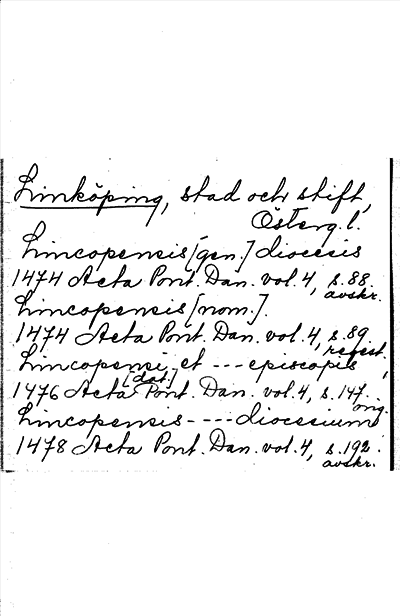 Linköping, stad och stift,
Österg. l.
Lincopensis [gen.] diocesis
1474 Acta Pont. Dan. vol. 4, s. 88,
avskr.
Lincopensis [nom.].
1474 Acta Pont. Dan. vol. 4, s. 89
regest.
Lincopensi, et --- episcopis,
[dat.]
1476 Acta Pont. Dan. vol. 4, s. 147.
orig.
Lincopensis ---- diocesium
1478 Acta Pont. Dan. vol. 4, s. 192.
avskr.